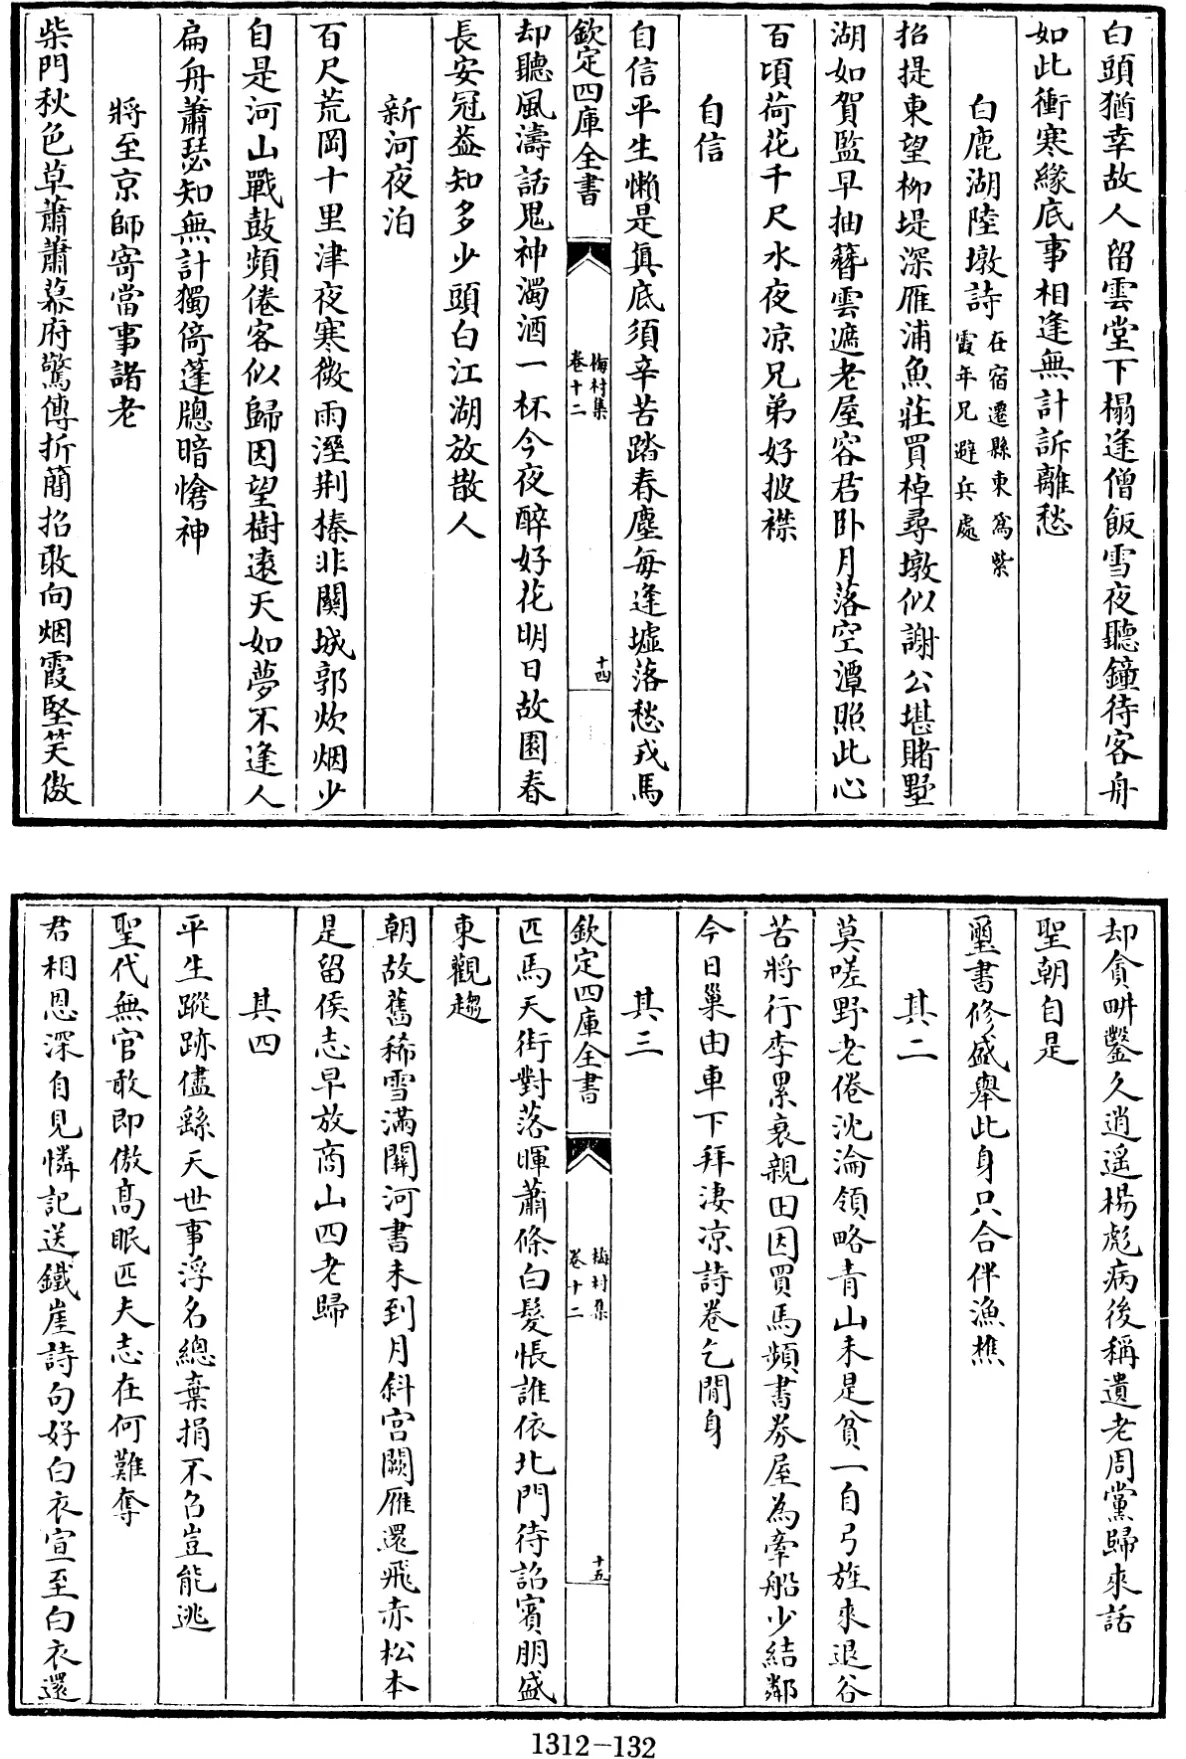 白頭猶幸故人留雲堂下榻逢僧飯雪夜聽鐘待客舟
如此衝寒緣底事相逢無計訴離愁
白鹿湖陸墩詩在宿遷縣東為紫
霞年兄避兵處
招提東望柳堤深雁浦魚莊買棹尋墩似謝公堪賭墅
湖如賀監早抽簪雲遮老屋容君卧月落空潭照此心
百頃荷花千尺水夜凉兄弟好披襟
自信
自信平生懶是眞底須辛苦踏春塵每逢墟落愁戎馬
欽定四庫全書
梅村集
卷十二
十四
却聽風濤話鬼神濁酒一杯今夜醉好花明日故園春
長安冠葢知多少頭白江湖放散人
新河夜泊
百尺荒岡十里津夜寒微雨溼荆榛非關城郭炊烟少
自是河山戰鼓頻倦客似歸因望樹遠天如夢不逢人
扁舟蕭瑟知無計獨倚蓬牕暗愴神
將至京師寄當事諸老
柴門秋色草蕭蕭幕府驚傳折簡招敢向烟霞堅笑傲
却貪畊鑿久逍遥楊彪病後稱遺老周黨歸來話
聖朝自是
璽書修盛舉此身只合伴漁樵
其二
莫嗟野老倦沈淪領略青山未是貧一自弓旌來退谷
苦將行李累衰親田因買馬頻書券屋為牽船少結鄰
今日巢由車下拜淒凉詩卷乞閒身
其三
欽定四庫全書
梅村集
卷十二
十五
匹馬天街對落暉蕭條白髮悵誰依北門待詔賓朋盛
東觀趨
朝故舊稀雪滿關河書未到月斜宫闕雁還飛赤松本
是留侯志早放商山四老歸
其四
平生蹤跡儘繇天世事浮名總棄捐不召豈能逃
聖代無官敢即傲髙眠匹夫志在何難奪
君相恩深自見憐記送鐵崖詩句好白衣宣至白衣還
1312-132